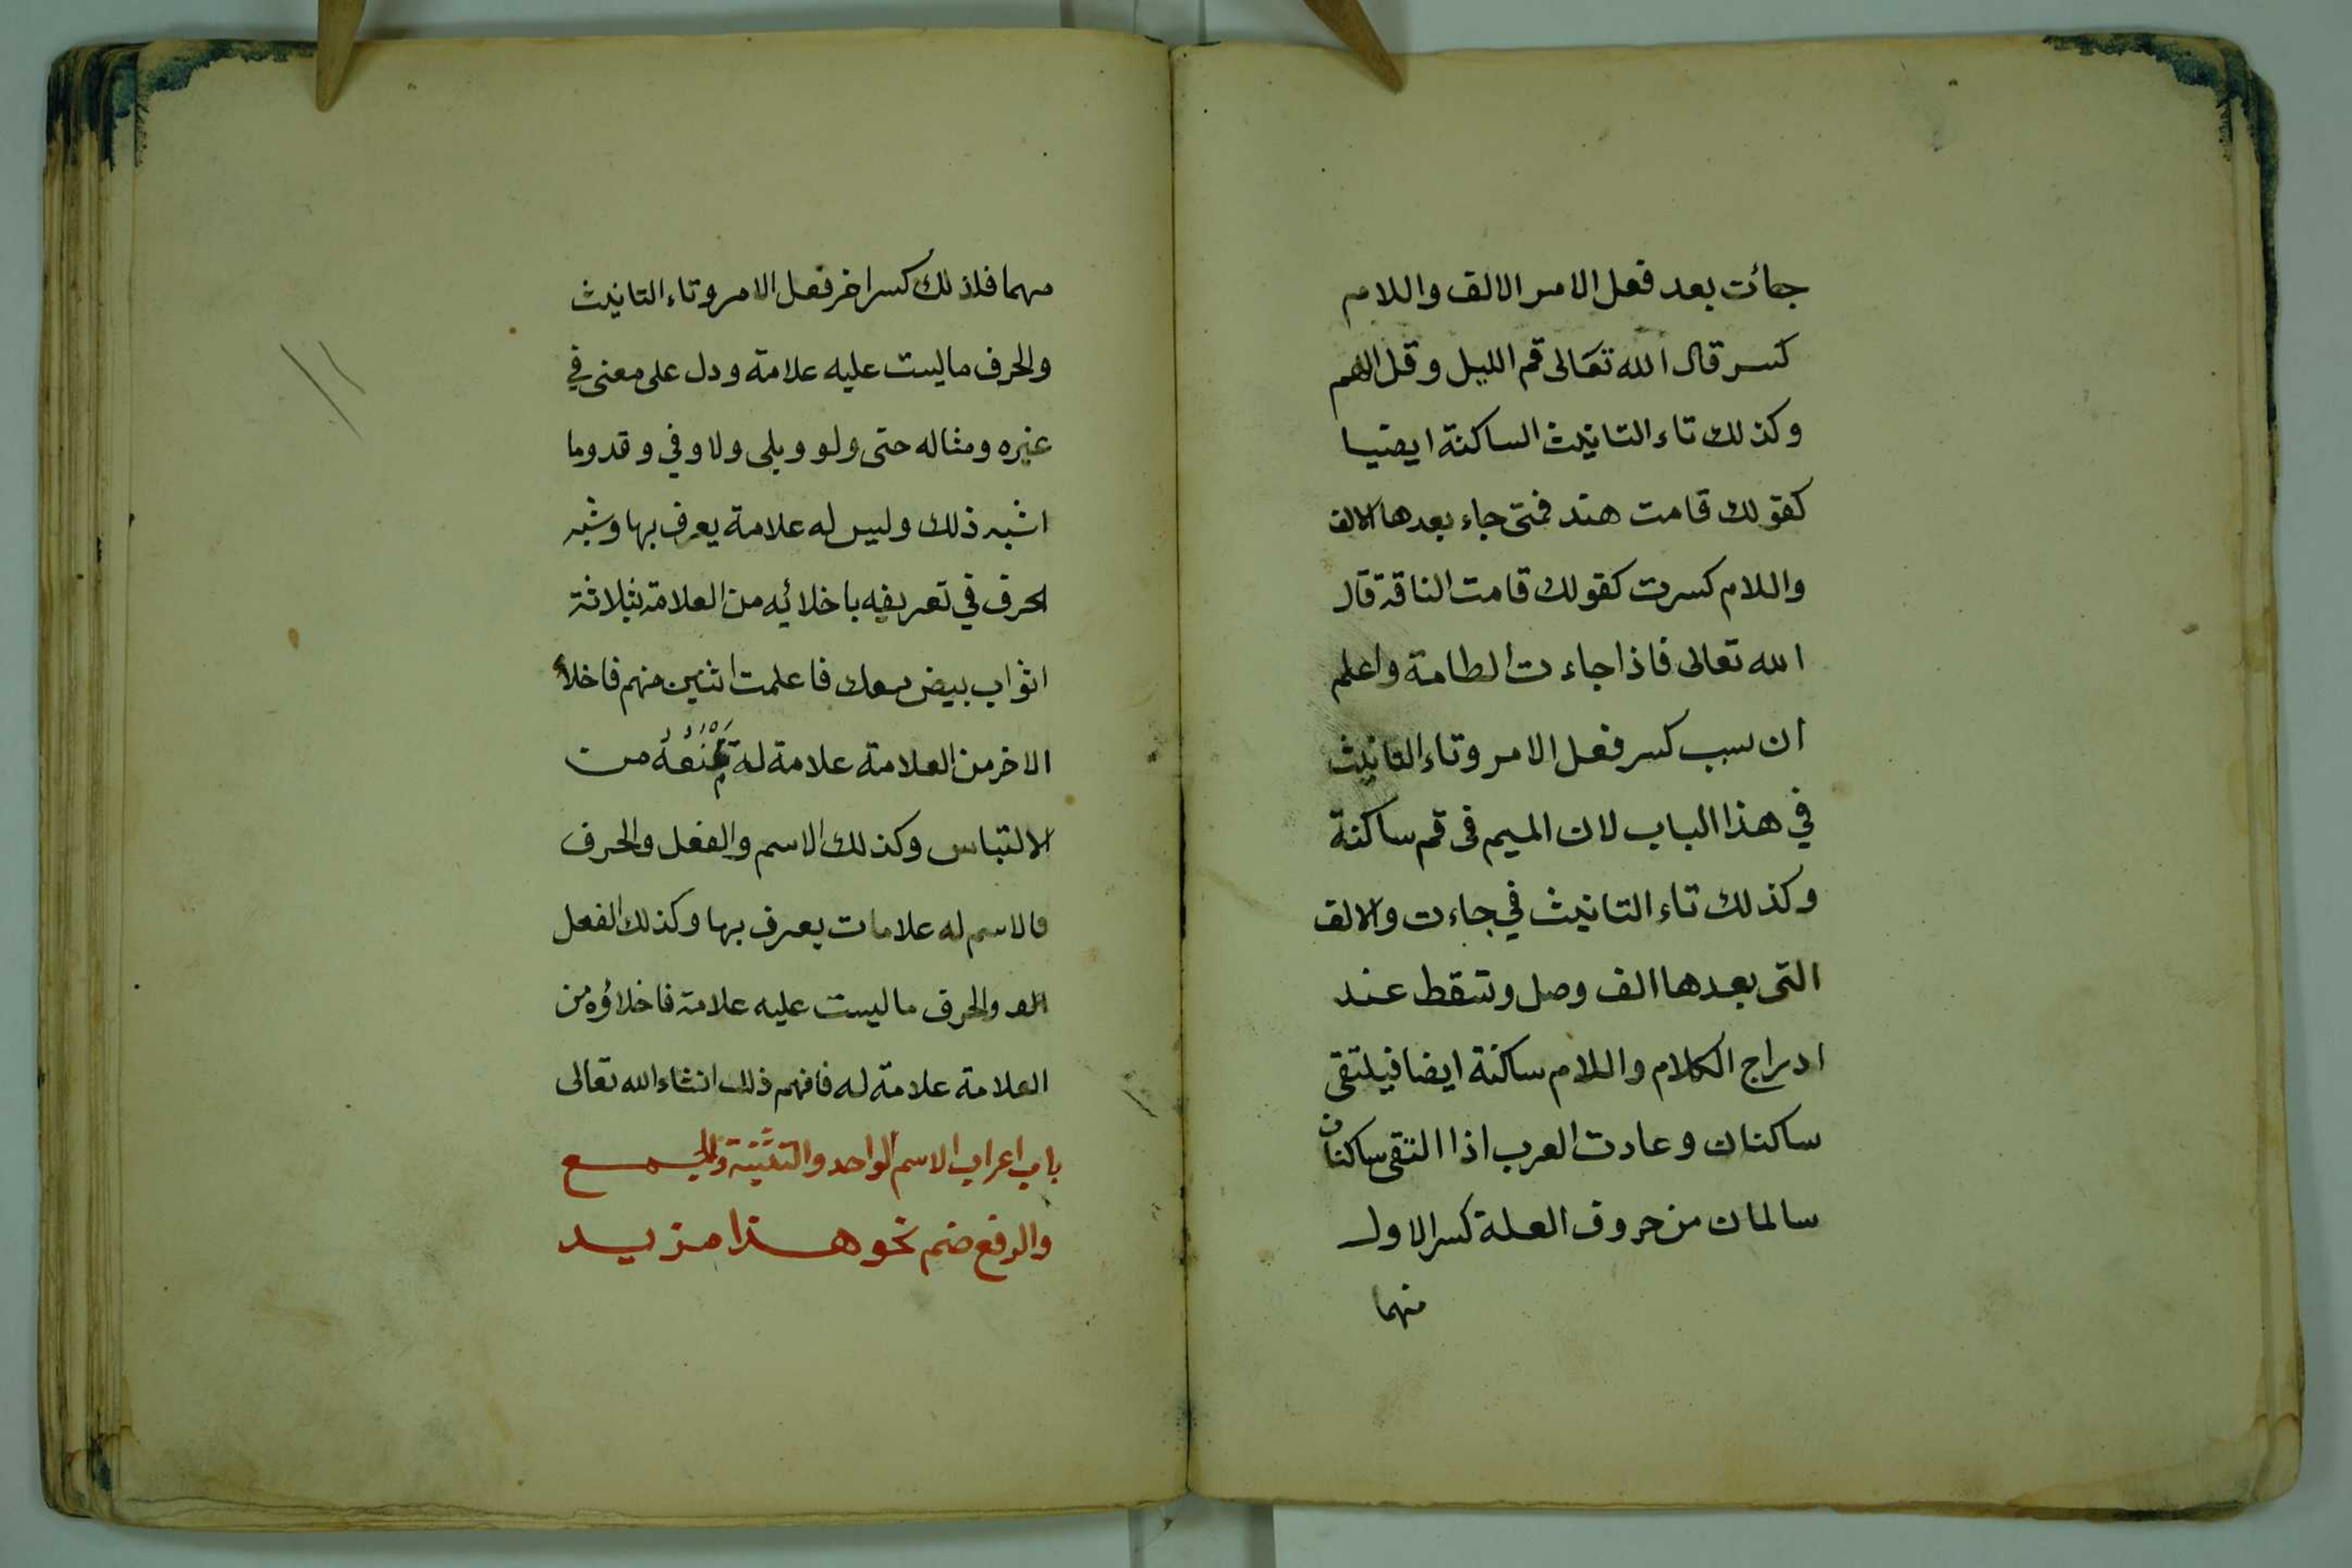 جائت بعد فعل الامر الالف واللام
كسر قال الله تعالى قم الليل وقل اللهم
وكذلك تاء التانيث الساكنة ايضا
كقولك قامت هند فمتى جاء بعدها الالف
واللام كسرت كقولك قامت الناقة قال
الله تعالى فاذا جاءت الطامة واعلم
ان سبب كسر فعل الامر وتاء التانيث
في هذا الباب لان الميم فى قم ساكنة
وكذلك تاء التانيث في جاءت والالف
التى بعدها الف وصل وتسقط عند
ادراج الكلام واللام ساكنة ايضا فيلتقى
ساكنان وعادت العرب اذا التقى ساكنان
سالمان من حروف العلة كسر الاول
منهما
مهما فلذلك كسر اخر فعل الامر وتاء التانيث
والحرف ما ليست عليه علامة ودل على معنى في
غيره ومثاله حتى ولو وبلى ولا وفي وقد وما
اشبه ذلك وليس له علامة يعرف بها وشبه
الحرف في تعريفه باخلائه من العلامة بثلاثة
اثواب بيض معك فاعلمت اثنين منهم فاخلاء
الاخر من العلامة علامة له تَمْنَعُهُ من
الالتباس وكذلك الاسم والفعل والحرف
فالاسم له علامات يعرف بها وكذلك الفعل
والحرف ما ليست عليه علامة فاخلاؤه من
العلامة علامة له فافهم ذلك انشاء الله تعالى
باب اعراب الاسم الواحد والتثنية والجمع
والرفع ضم نحو هذا مزيد
١١